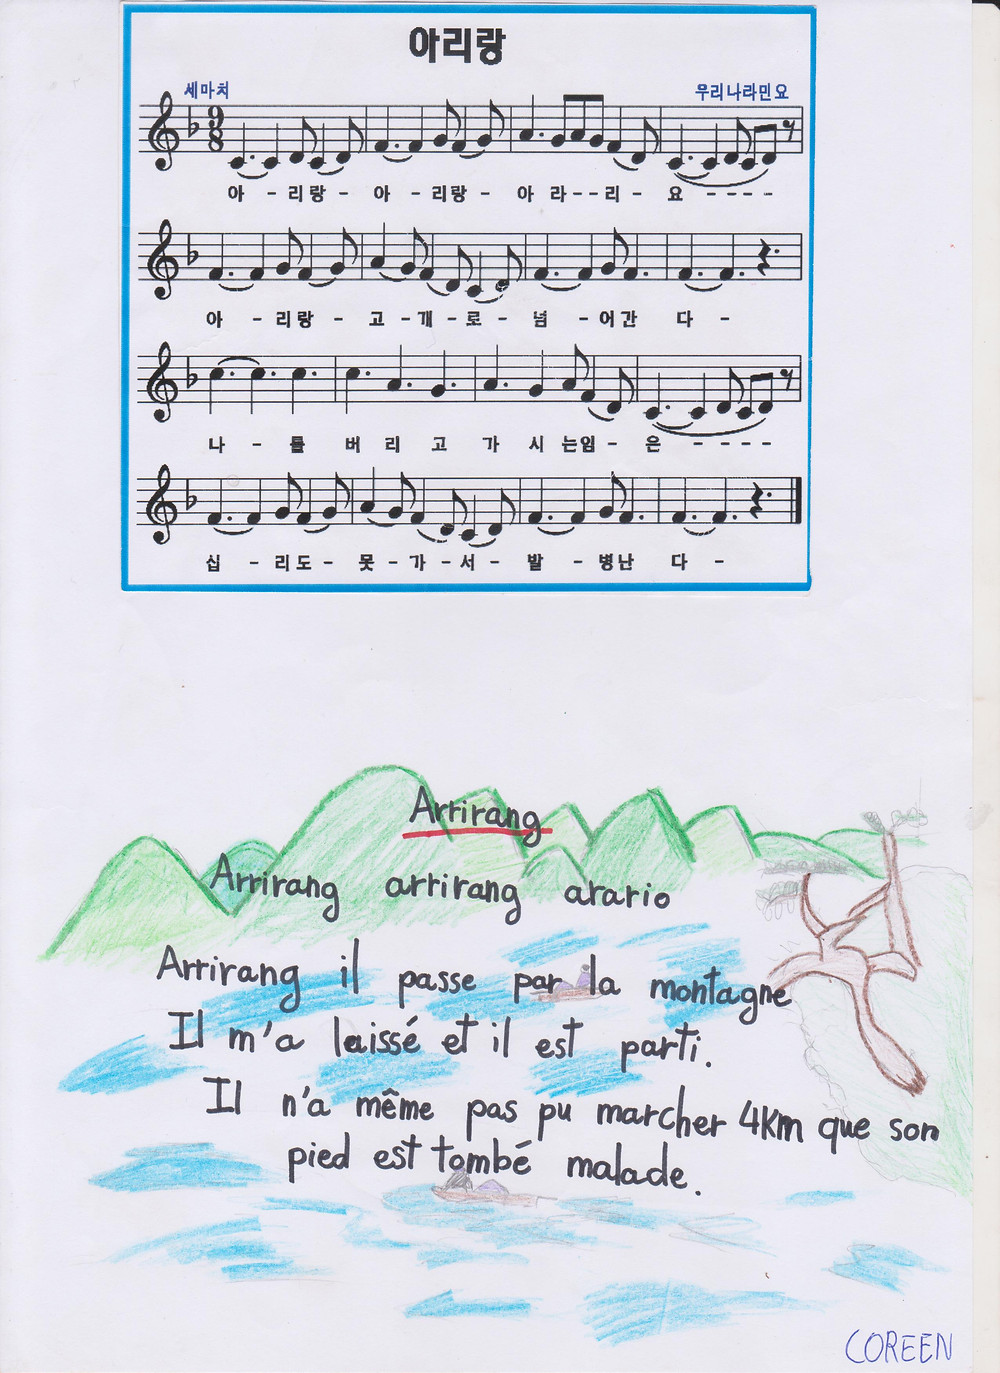 아리랑
세마치 우리나라민요
9
8
아 - 리랑 - 아 - 리랑 - 아 라 - - 리 - 요 - - - -
아 - 리랑 - 고 - 개 - 로 - 넘 - 어간 다 -
나 - 를 버 리 고 가 시 는임 - 은 - - - -
십 - 리도 - 못 - 가 - 서 - 발 - 병난 다 -
Arrirang
Arrirang arrirang arario
Arrirang il passe par la montagne
Il m'a laissé et il est parti.
Il n'a même pas pu marcher 4Km que son
pied est tombé malade.
COREEN